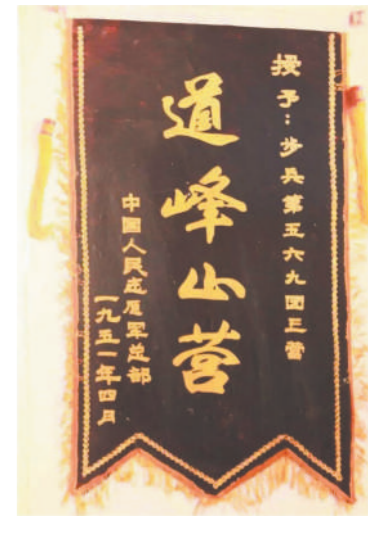 授予：步兵第五六九团三营
道峰山营
中国人民志愿军总部
一九五一年四月